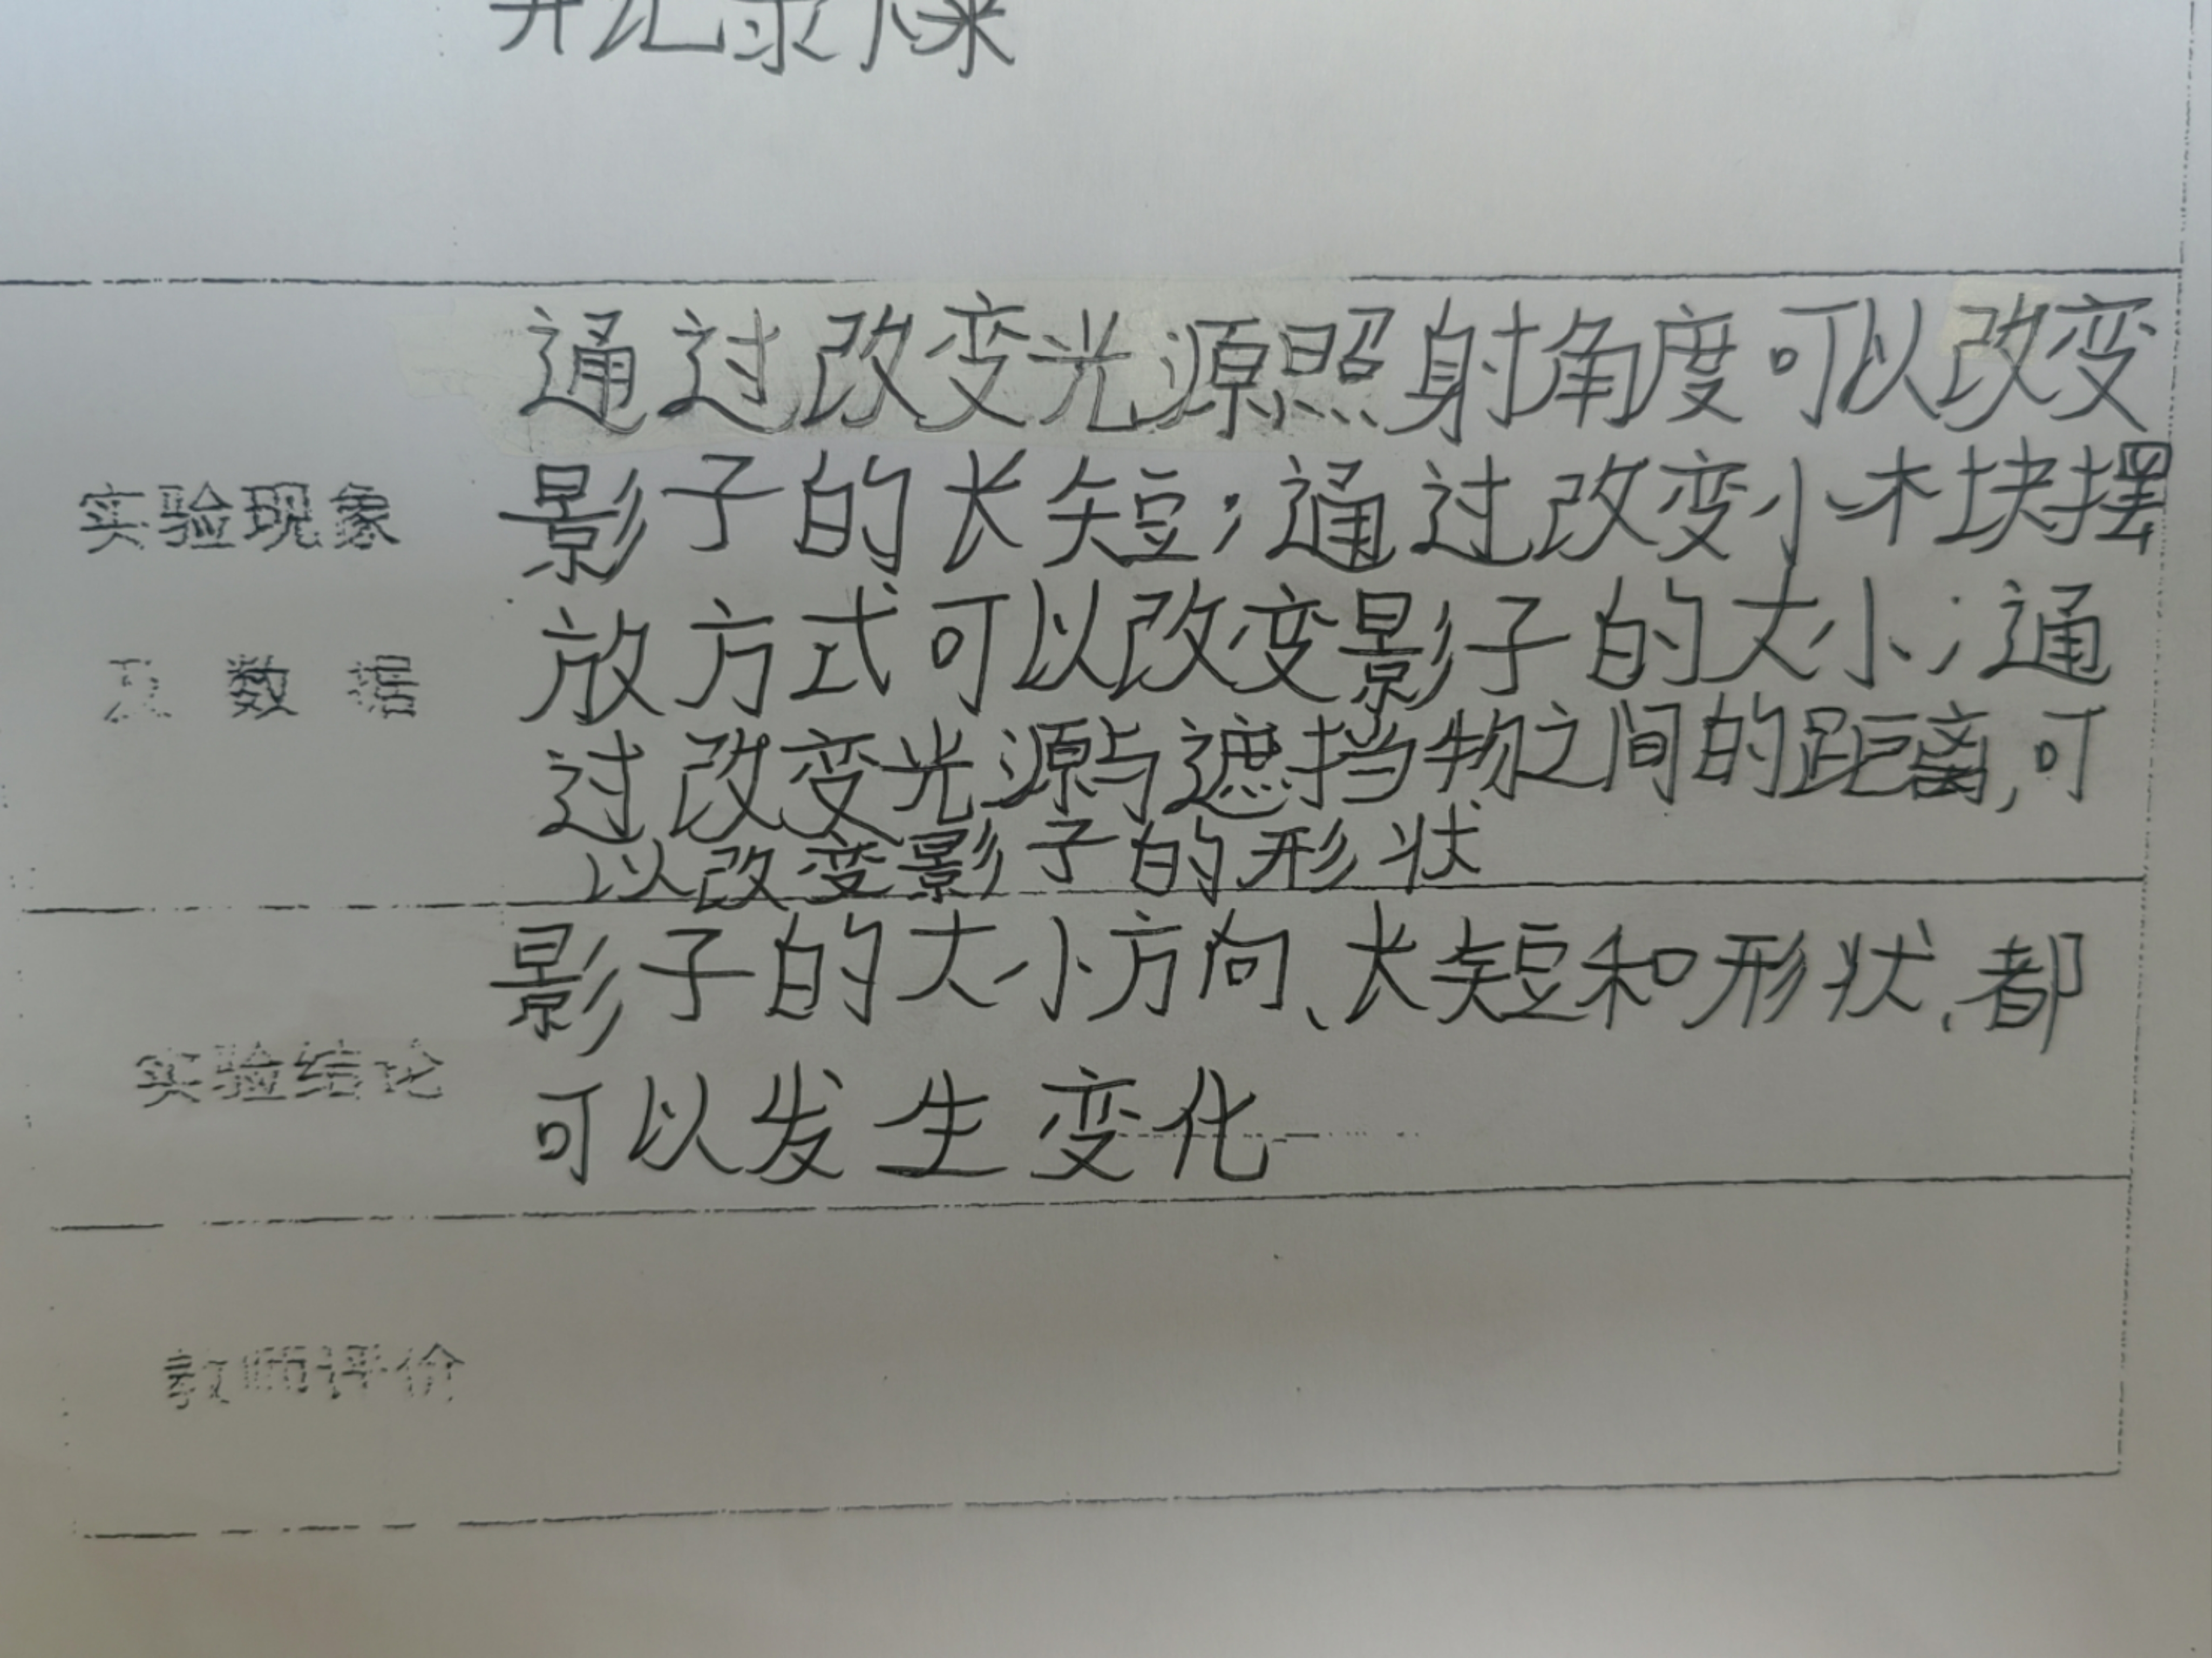 并记录下来
通过改变光源照射角度可以改变
影子的长短;通过改变小木块摆
实验现象
放方式可以改变影子的大小;通
及数据
过改变光源与遮挡物之间的距离,可
以改变影子的形状
影子的大小方向、长短和形状、都
实验结论
可以发生变化
教师评价